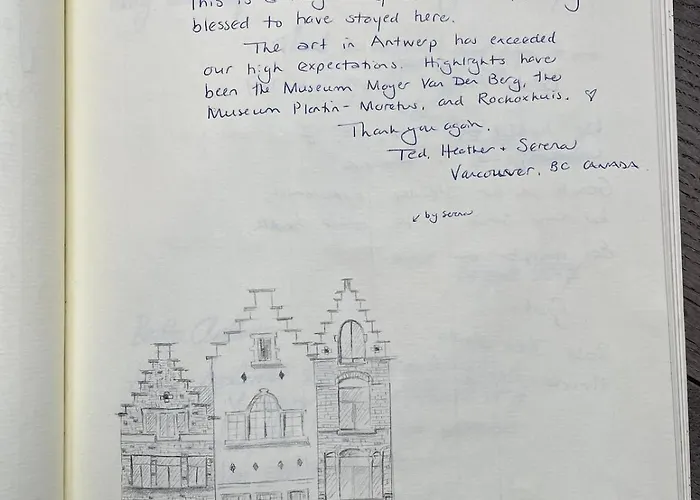 This is a
blessed to have stayed here.
The art in Antwerp has exceeded
our high expectations. Highlights have
been the Museum Mayer Van Den Berg, the
Museum Plantin-Moretus, and Rockoxhuis. ♡
Thank you again.
Ted, Heather + Serena
Vancouver, BC CANADA
↙ by Serena